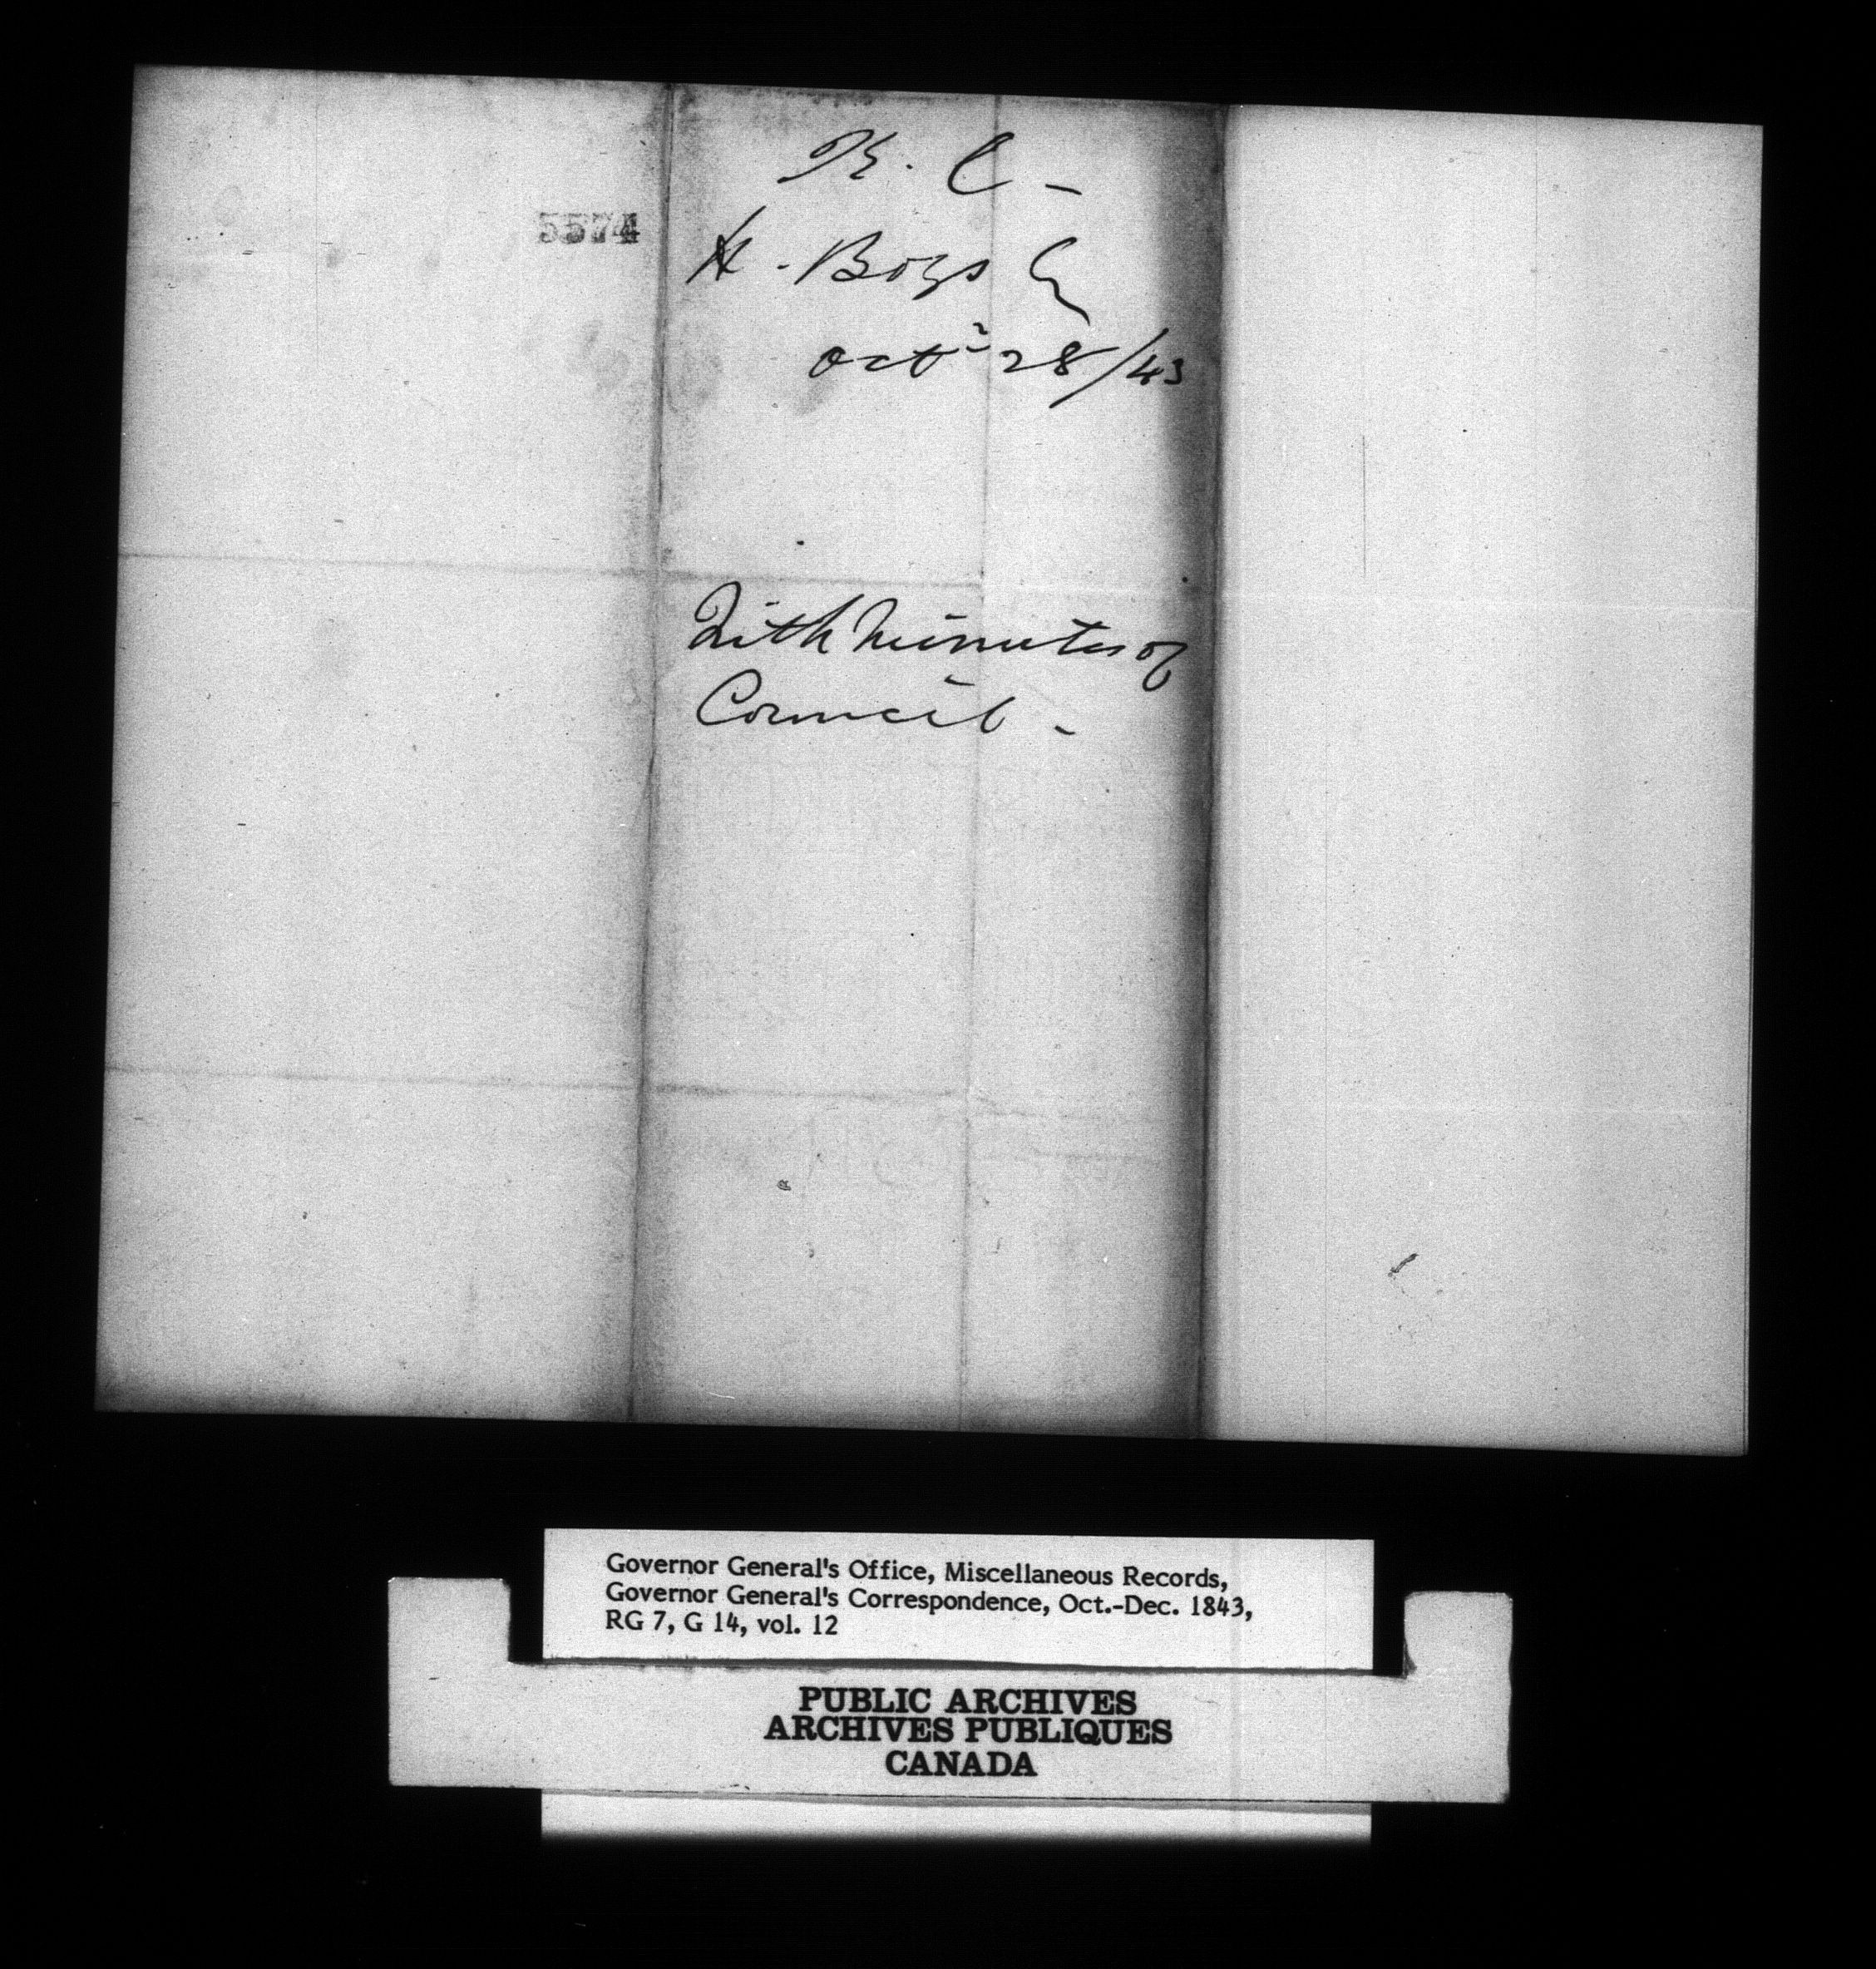 K. C -
5574
H. Boys
Octr 28/43
With Minutes of
Council -
Governor General's Office, Miscellaneous Records,
Governor General's Correspondence, Oct.-Dec. 1843,
RG 7, G 14, vol. 12
PUBLIC ARCHIVES
ARCHIVES PUBLIQUES
CANADA